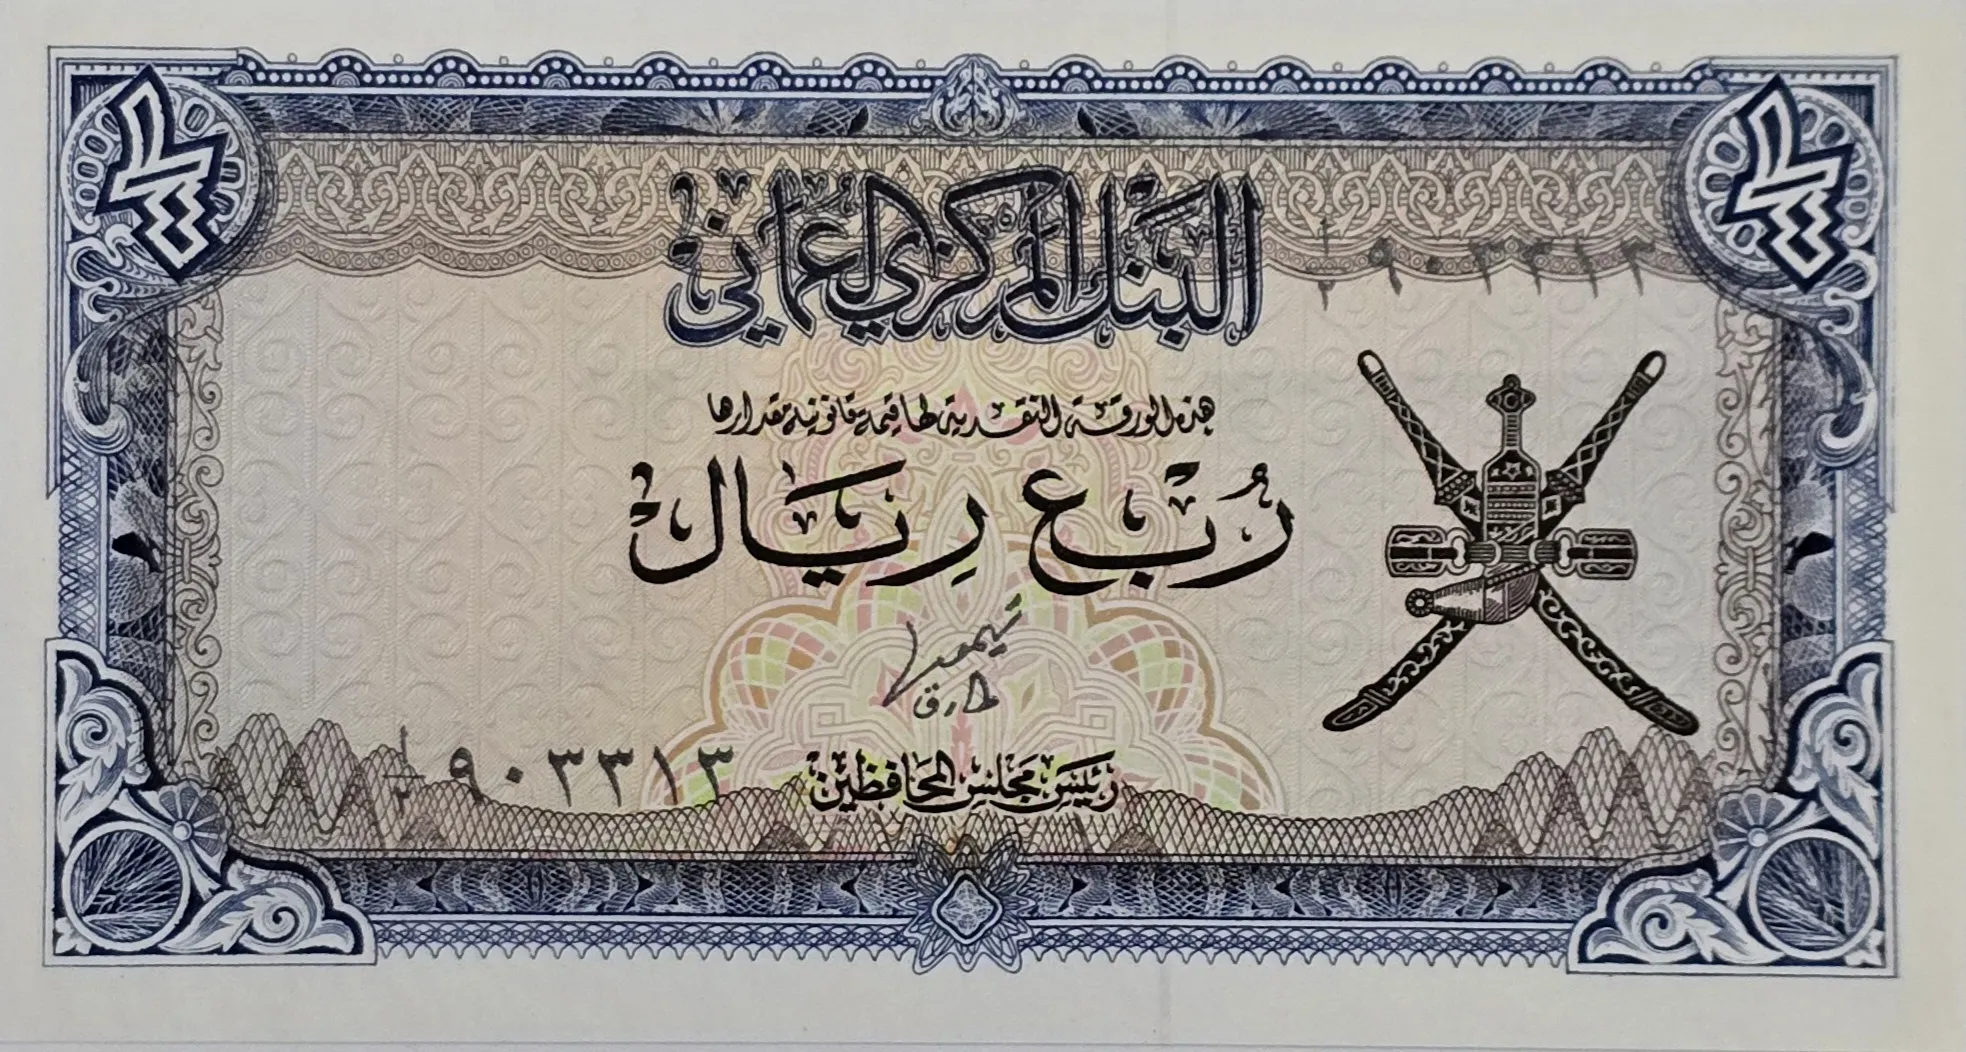 البنك المركزي العماني
٩٠٣٣١٣
هذه الورقة النقدية لها قيمة قانونية مقدارها
رُبْع رِيَال
طارق
٩٠٣٣١٣
رئيس مجلس المحافظين